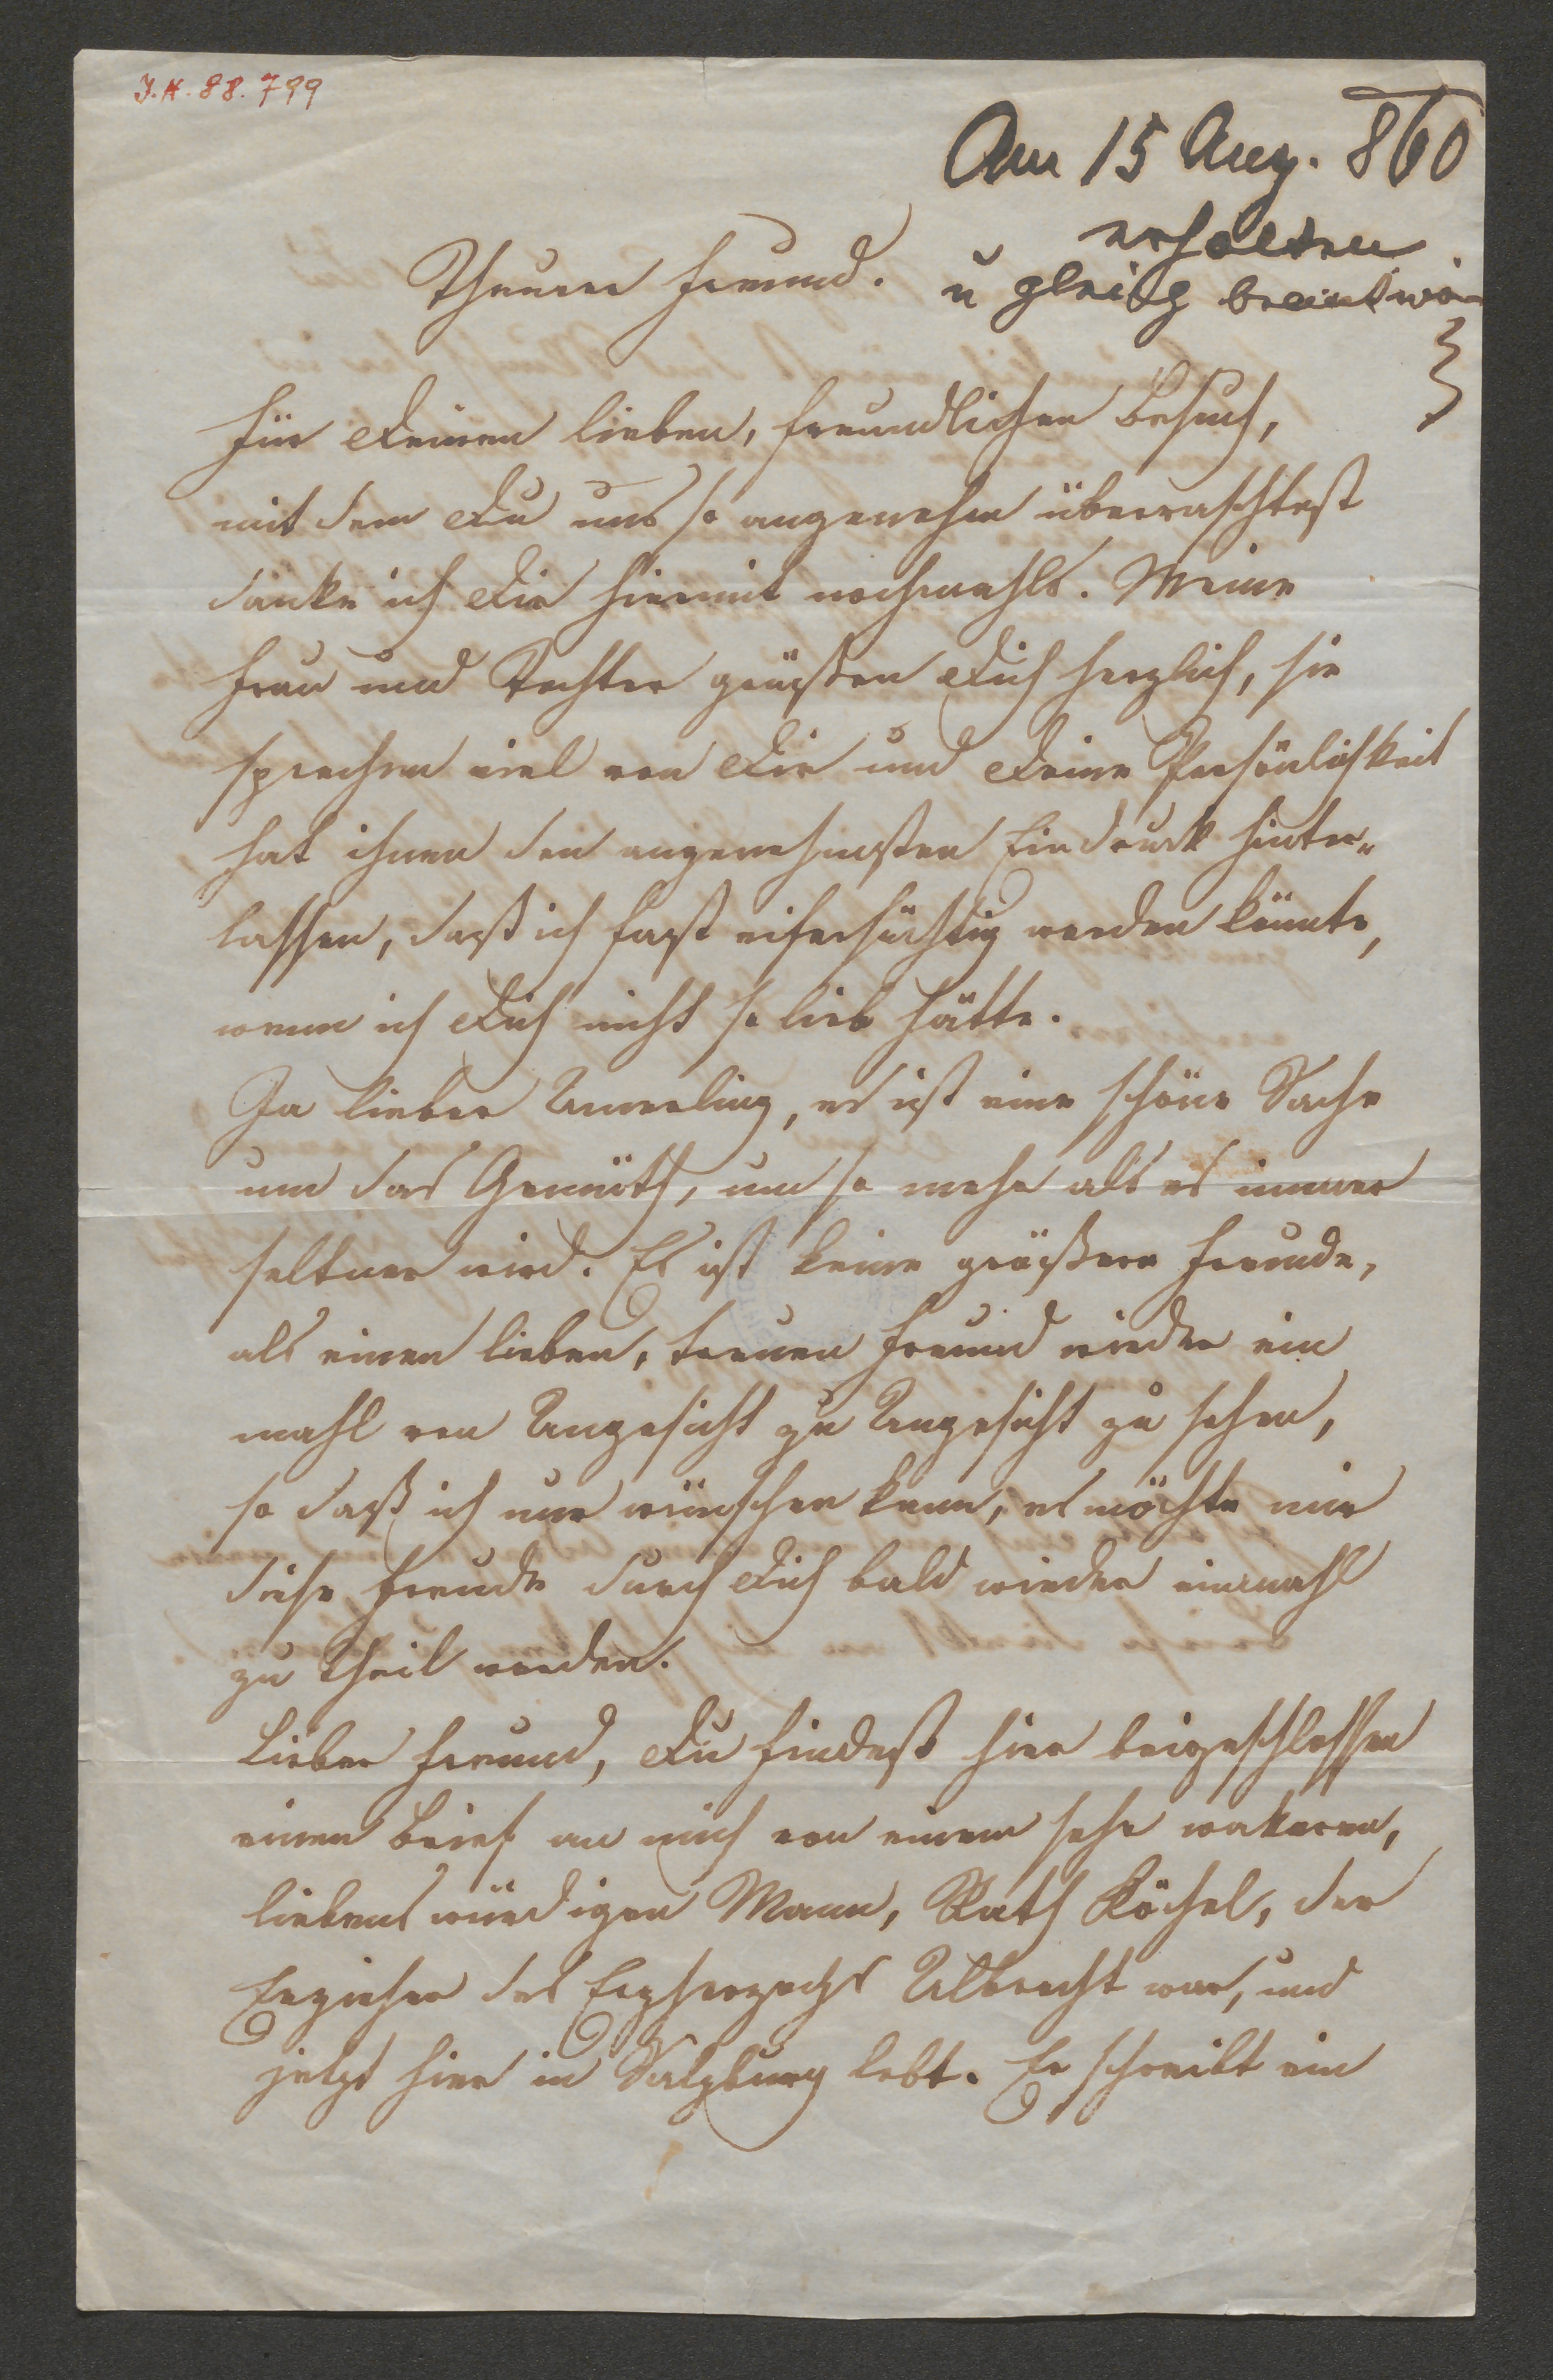 I.N. 88.799
Am 15 Aug. 860
erhalten
u gleich beantwor
Theurer Freund.
Für Deinen lieben, freundlichen Besuch,
mit dem Du uns so angenehm überraschtest
danke ich Dir hiermit nochmahls. Meine
Frau und Tochter grüßen Dich herzlich, sie
sprechen viel von Dir und Deine Persönlichkeit
hat ihnen den angenehmsten Eindruck hinter„
lassen, daß ich fast eifersüchtig werden könnte,
wenn ich Dich nicht so lieb hätte.
Ja lieber Amerling, es ist eine schöne Sache
um das Gemüth, um so mehr als es immer
seltner wird. Es ist keine größere Freude,
als einen lieben, treuen Freund wieder ein
mahl von Angesicht zu Angesicht zu sehen,
so daß ich nur wünschen kann, es möchte mir
diese Freude durch Dich bald wieder einmahl
zu Theil werden.
Lieber Freund, Du findest hier beigeschlossen
einen Brief an mich von einem sehr wakeren,
liebenswürdigen Mann, Rath Köchel, der
Erzieher des Erzherzogs Albrecht war, und
jetzt hier in Salzburg lebt. Er schreibt ein